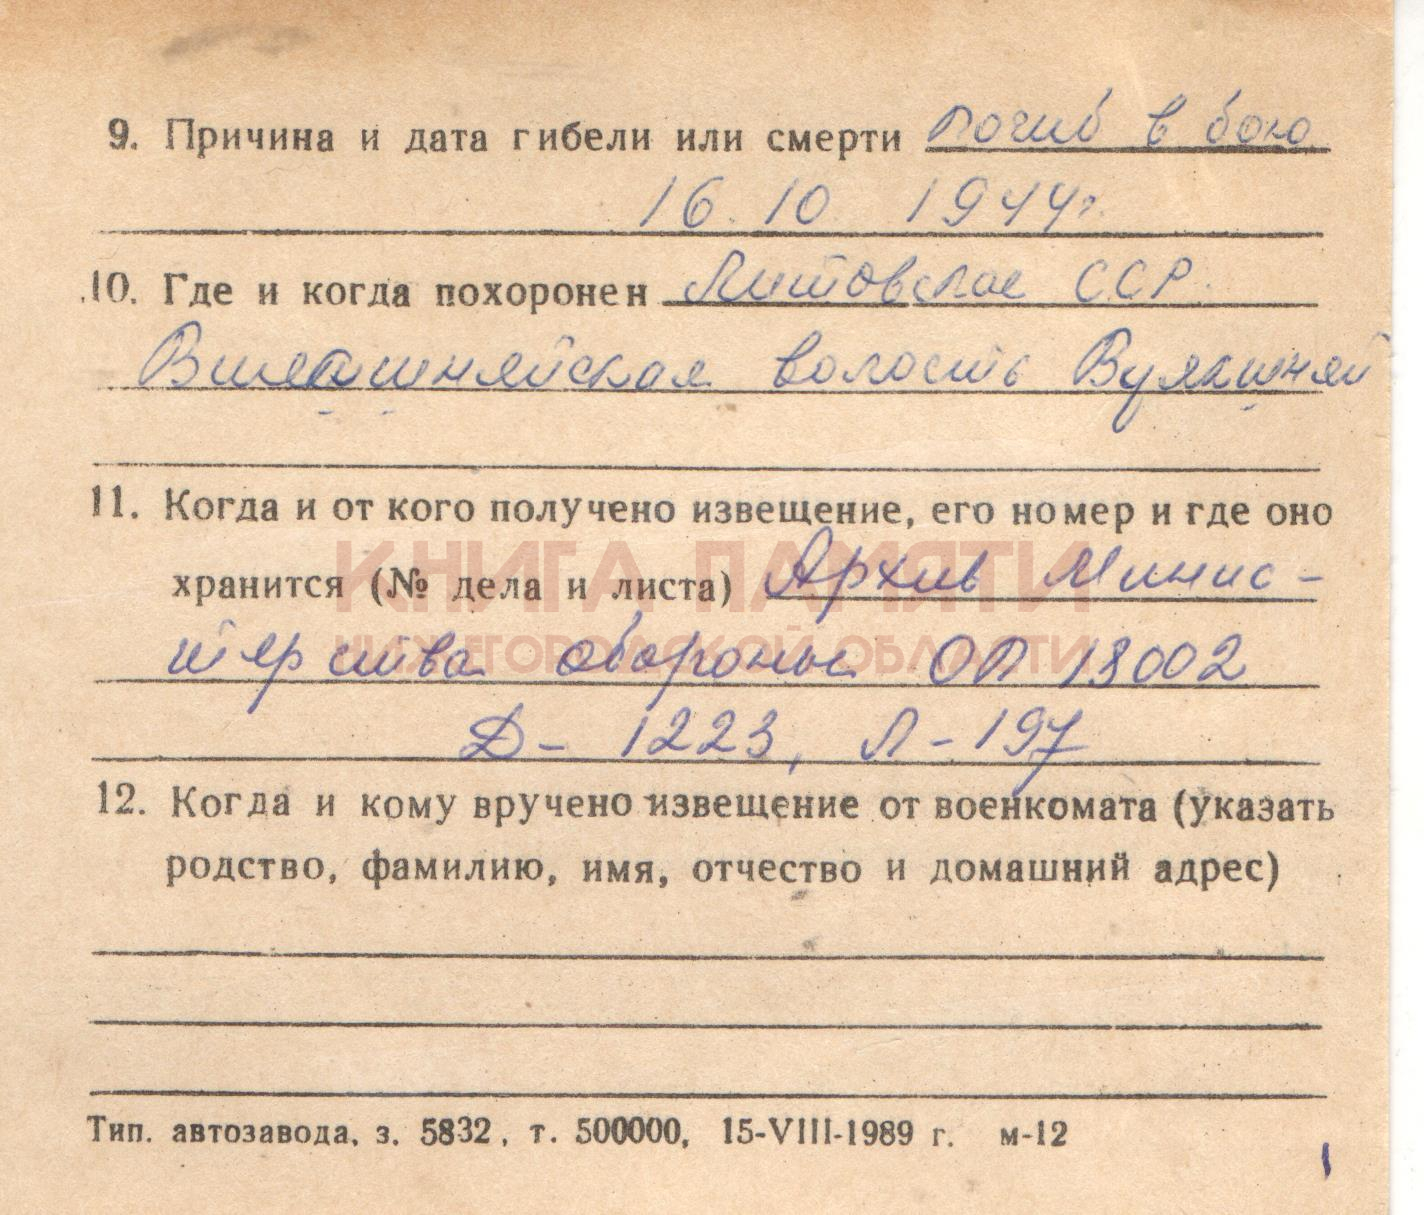 9. Причина и дата гибели или смерти погиб в бою
16.10 1944г.
10. Где и когда похоронен Литовская ССР.
волость Вуякшняй
11. Когда и от кого получено извещение, его номер и где оно
КНИГА ПАМЯТИ
хранится (№ дела и листа) Архив Минис-
НИЖЕГОРОДСКОЙ ОБЛАСТИ
терства обороны ОП 18002
Д - 1223, Л - 197
12. Когда и кому вручено извещение от военкомата (указать
родство, фамилию, имя, отчество и домашний адрес)
Тип. автозавода, з. 5832, т. 500000, 15-VIII-1989 г. м-12